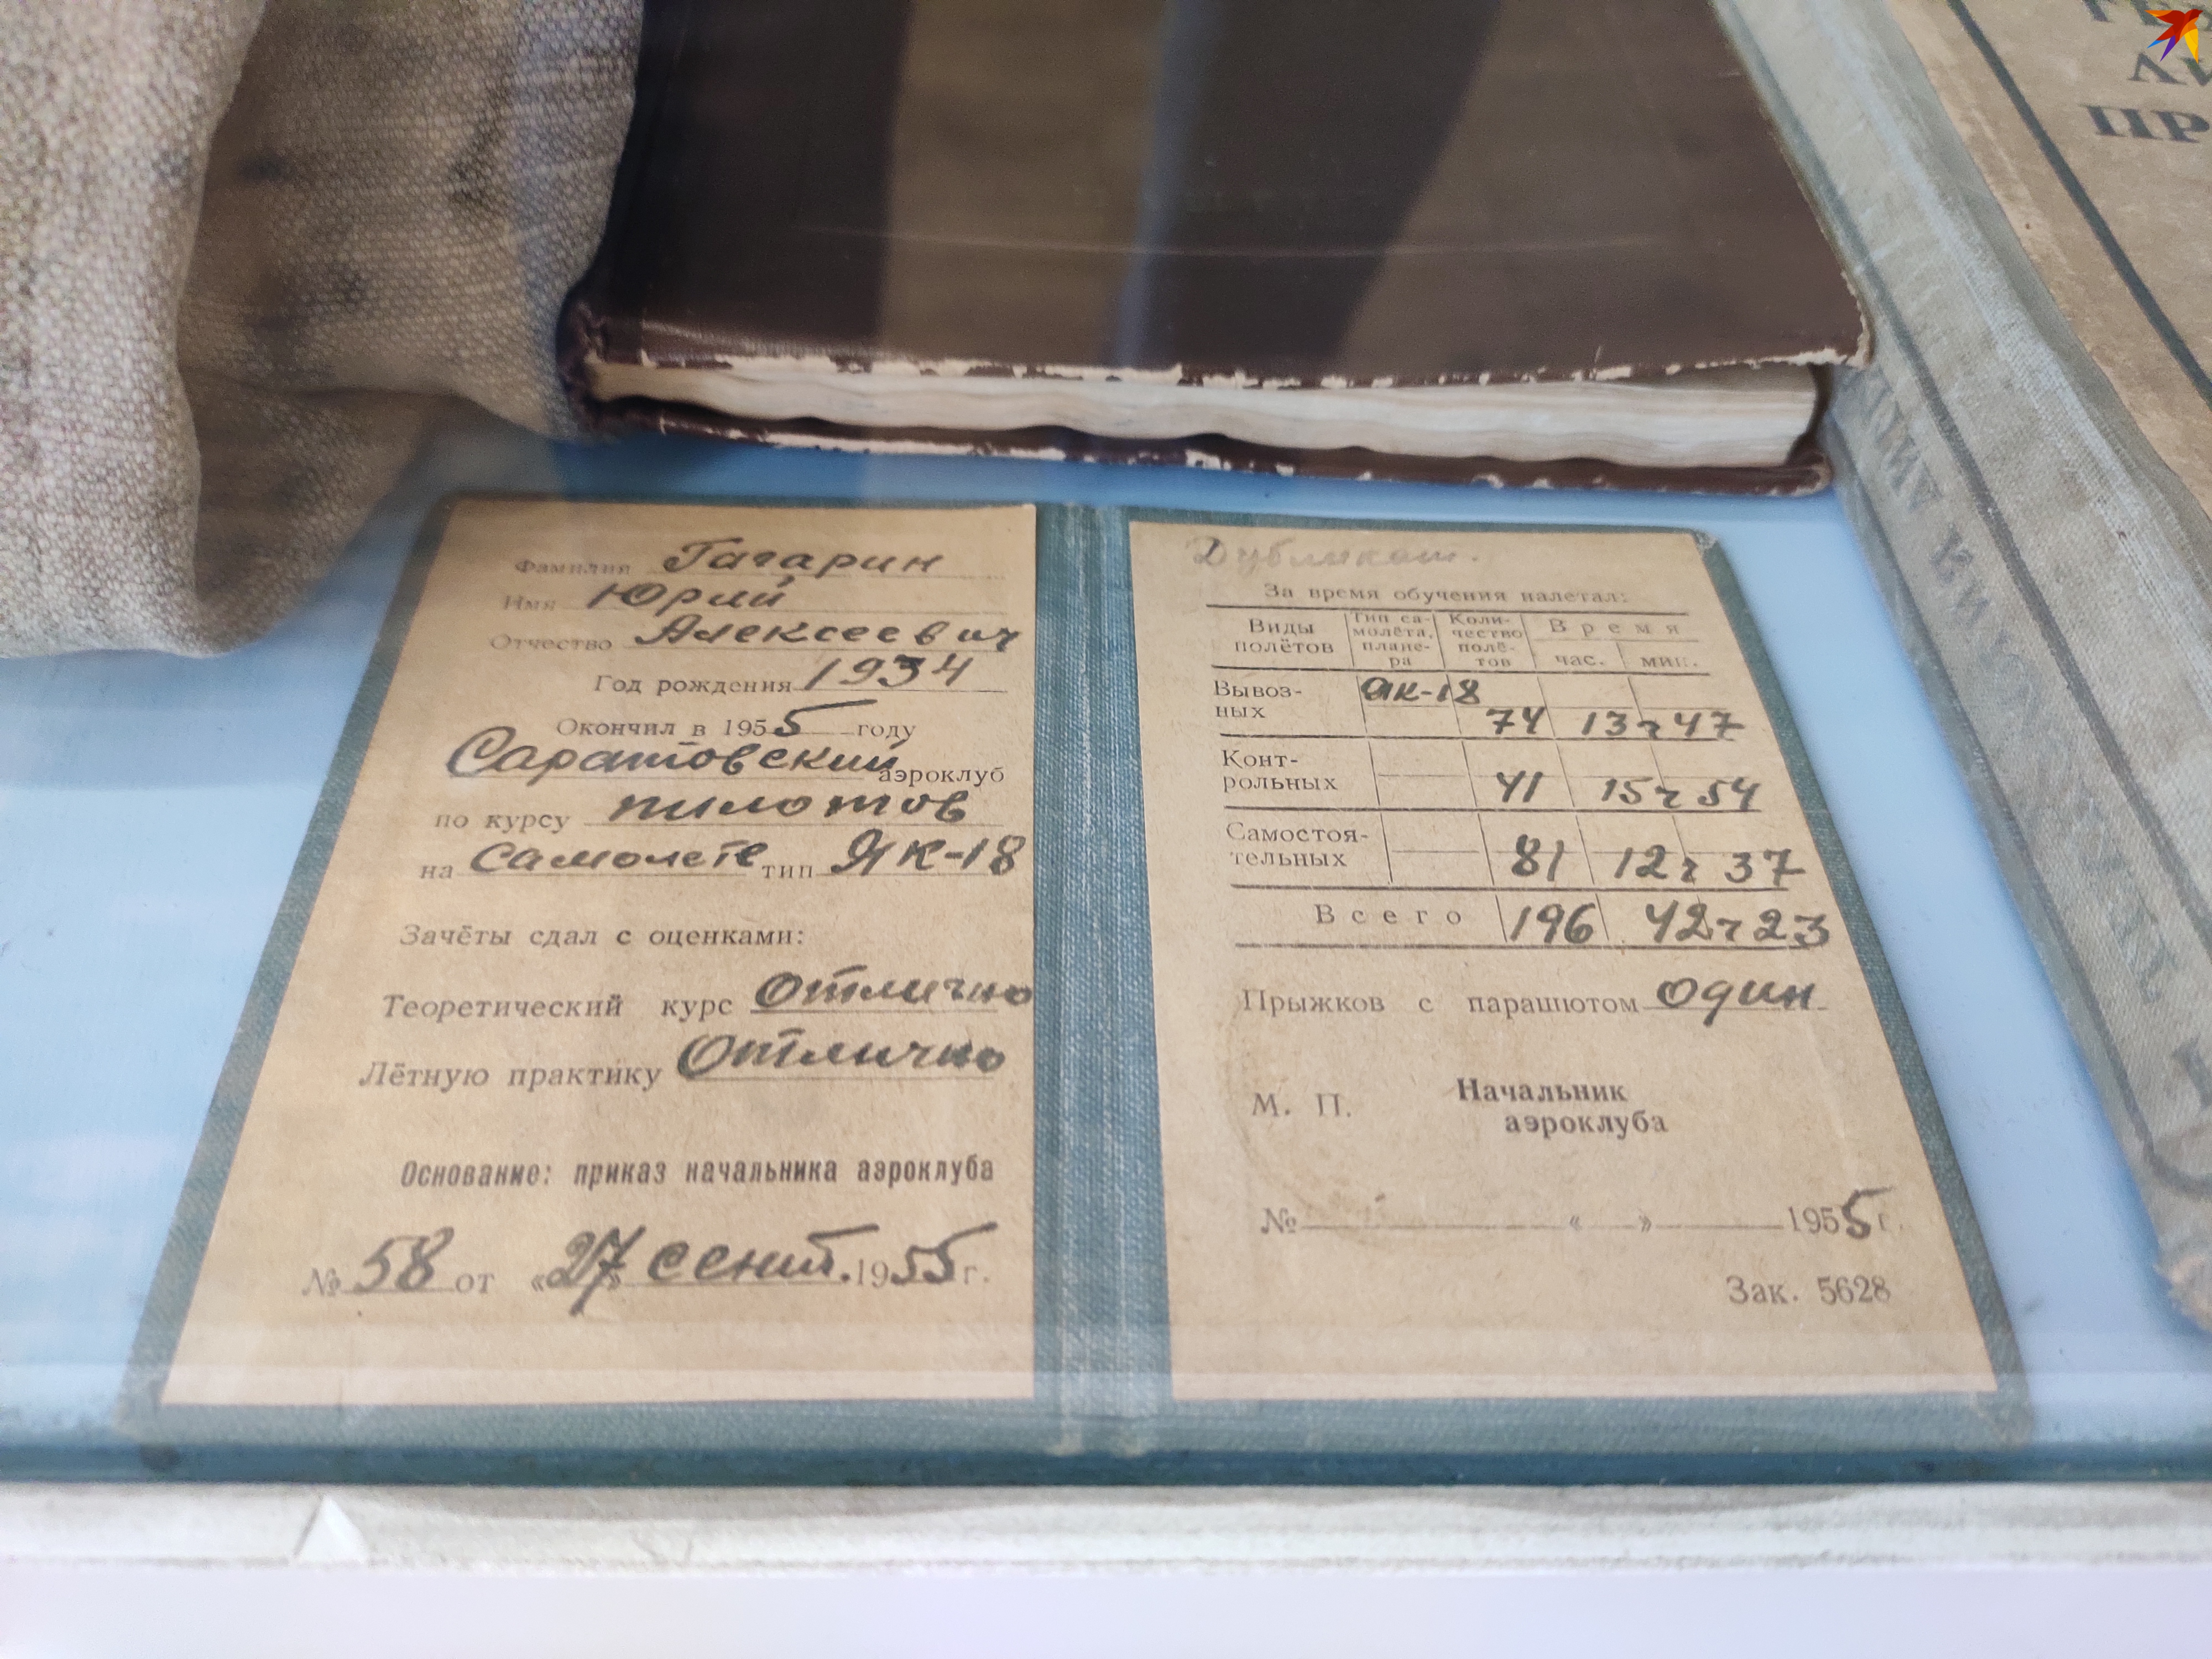 Фамилия Гагарин
Имя Юрий
Отчество Алексеевич
Год рождения 1934
Окончил в 1955 году
Саратовский аэроклуб
по курсу пилотов
на самолете тип ЯК-18
Зачёты сдал с оценками:
Теоретический курс отлично
Лётную практику отлично
Основание: приказ начальника аэроклуба
№ 58 от «27» сент. 1955 г.
Дубликат.
За время обучения налетал:
Виды полётов Тип самолёта, планера Количество полётов Время час. мин.
Вывоз-
ных Як-18 74 13ч 47
Конт-
рольных 41 15ч 54
Самостоя-
тельных 81 12ч 37
Всего 196 42ч 23
Прыжков с парашютом один
М. П. Начальник
аэроклуба
№ « » 1955 г.
Зак. 5628
ЛИ
ПР